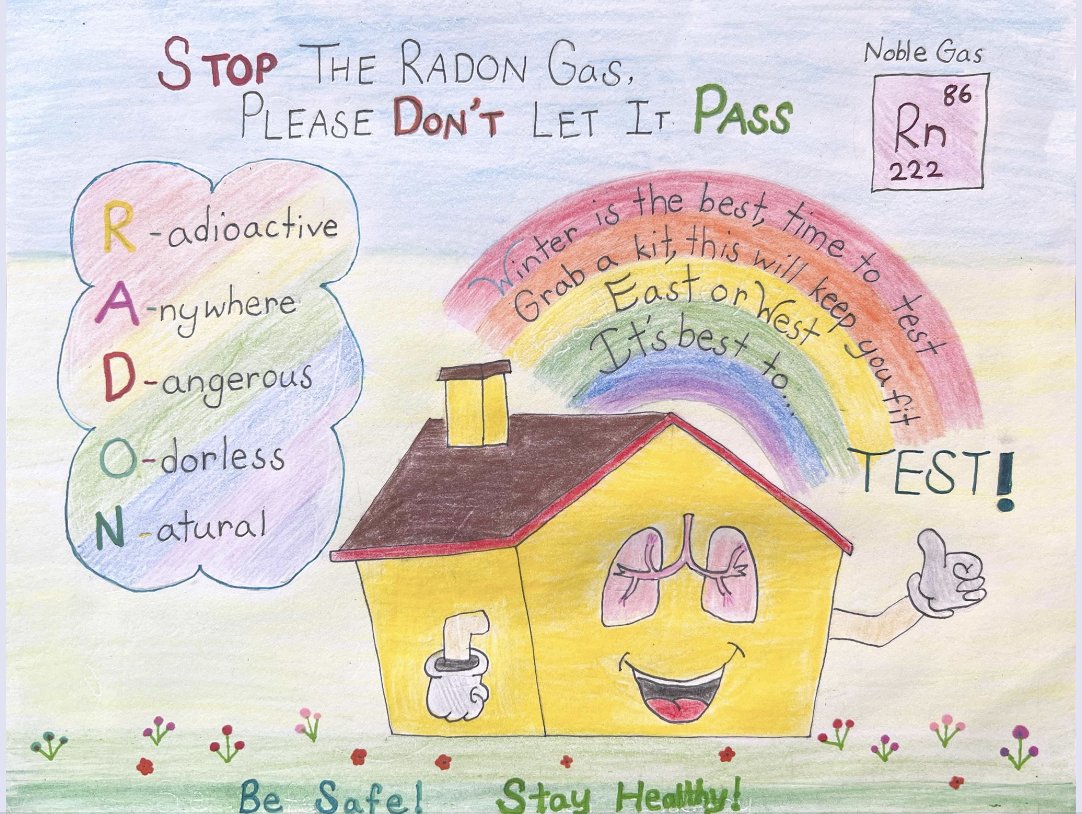 STOP THE RADON Gas,
PLEASE DON'T LET IT PASS
Noble Gas
86
Rn
222
R-adioactive
A-nywhere
D-angerous
O-dorless
N-atural
Winter is the best, time to test
Grab a kit, this will keep you fit
East or West
It's best to....
TEST!
Be Safe! Stay Healthy!